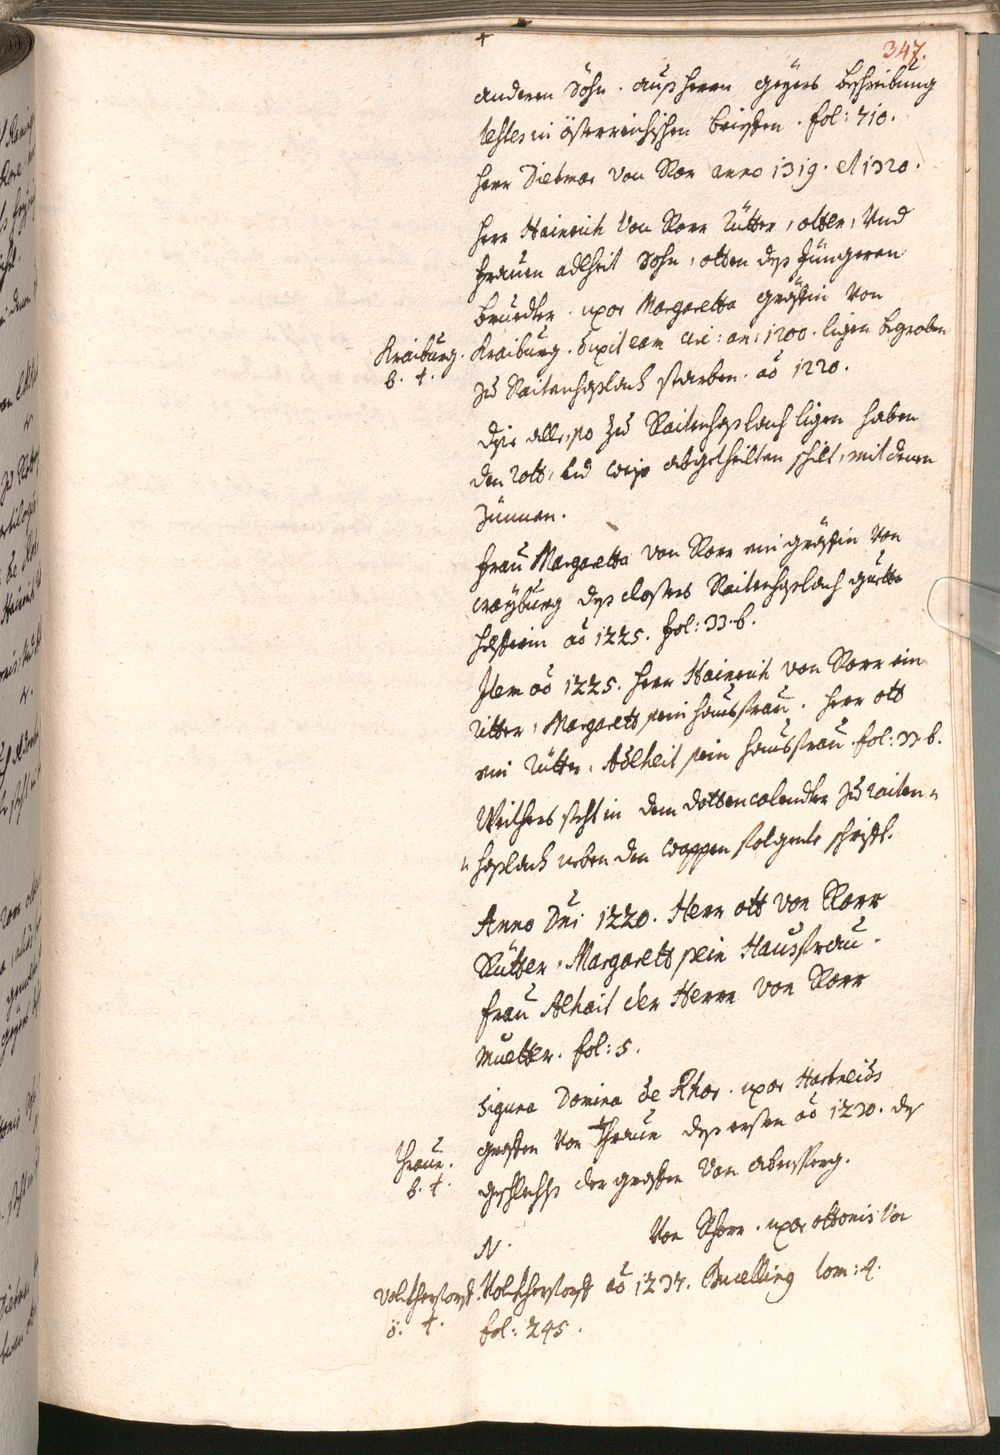 347.
anderen Sohn. auß herrn Geyers beschreibung
lestes in österreichischen briessen. fol: 710.
herr Dietmar von Ror anno 1319. et 1320.
herr Hainrich von Rorr Ritter, Otten, und
frauen adlheit Sohn, otten deß Jüngeren
bruedter. uxor Margaretha gräffin von
Kraiburg. b. t.
Kraiburg. duxit eam circi: an: 1200. ligen begraben
zu Raitenhaslach starben. aō 1220.
dise alle, so zu Raitenhaslach ligen haben
den rott, und weiß abgetheilten schilt, mit denen
zünnen.
frau Margaretha von Rorr ein gräffin von
crayburg deß closters Raitenhaslach guette
helfferin aō 1225. fol: 33. b.
Item aō 1225. herr Hainrich von Rorr ein
ritter, Margareth sein hausfrau. herr ott
ein Rütter, Adlheit sein hausfrau. fol: 33 b.
Weithers steht in dem dottencalendter zu raiten=
haslach neben den wappen folgente schrifft.
Anno Dni 1220. Herr ott von Rorr
Rütter, Margareth sein Hausfrau.
frau Alhait der Herrn von Rorr
Muetter. fol: 5.
Siguna Domina de Rhor. uxor Hartneids
thraun. b. t.
graffen von Thraun deß ersten aō 1230. deß
geschlechts der graffen von abensperg.
N. von Rhorr. uxor ottonis von
Volckherstorff. ö. t.
Volckherstorff aō 1237. Bucelling tom: 4.
fol: 245.